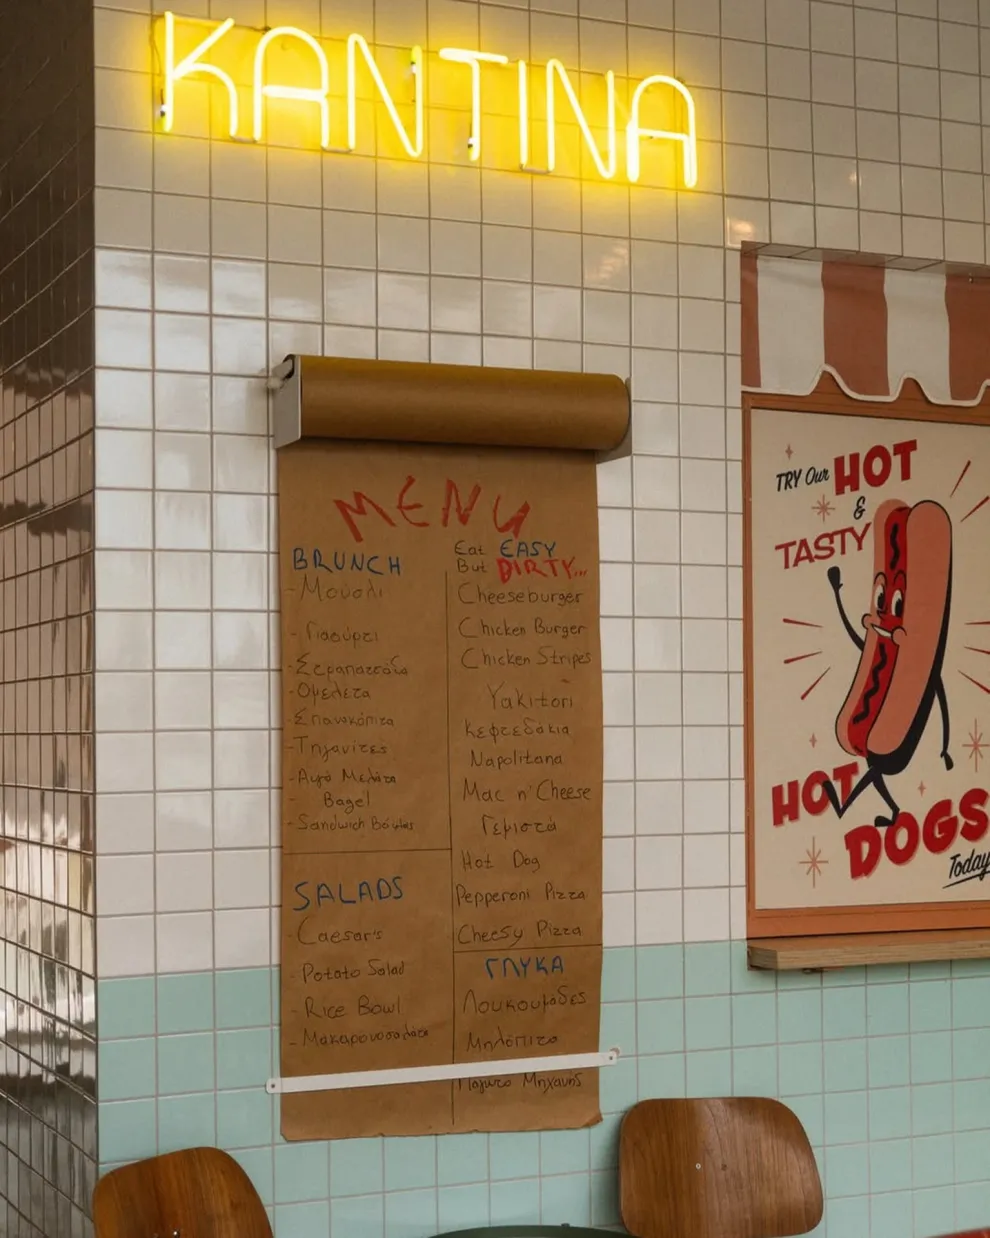 KANTINA
MENU
BRUNCH
- Μουσλι
- Γιαούρτι
- Στραπατσάδα
- Ομελέτα
- Σπανακόπιτα
- Τηγανίτες
- Αυγά Μελάτα
- Bagel
- Sandwich
SALADS
- Caesar's
- Potato Salad
- Rice Bowl
- Μακαρονοσαλάτα
Eat EASY
But DIRTY...
Cheeseburger
Chicken Burger
Chicken Stripes
Yakitori
Κεφτεδάκια
Napolitana
Mac n' Cheese
Γεμιστά
Hot Dog
Pepperoni Pizza
Cheesy Pizza
ΓΛΥΚΑ
Λουκουμάδες
Μηλόπιτα
Παγωτο Μηχανής
TRY Our HOT
&
TASTY
HOT
DOGS
Today